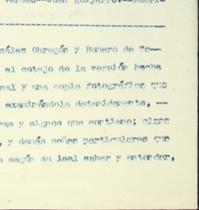 nzález Obregón y Romero de Te--
el cotejo de la versión hecha
nal y una copia fotográfica que
examinándola detenidamente, --
ras y signos que contiene; clara
, y demás señas particulares que
según su leal saber y entender,